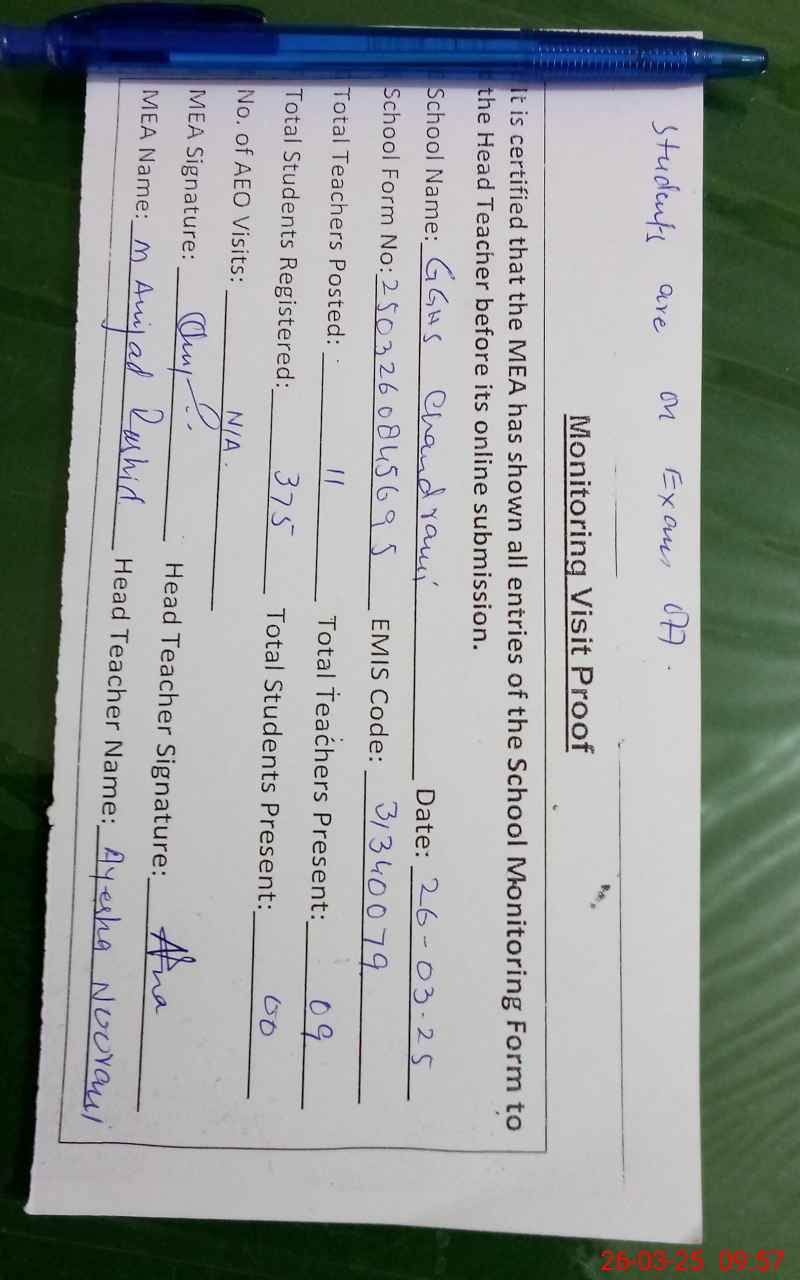 Students are on Exam
Monitoring Visit Proof
It is certified that the MEA has shown all entries of the School Monitoring Form to
the Head Teacher before its online submission.
School Name: GGHS Chandrani Date: 26-03-25
School Form No: 2503260845695 EMIS Code: 31340079
Total Teachers Posted: 11 Total Teachers Present: 09
Total Students Registered: 375 Total Students Present: 00
No. of AEO Visits: N/A.
MEA Signature: Head Teacher Signature:
MEA Name: M Amjad Rashid Head Teacher Name: Ayesha Noorani
26-03-25 09:57